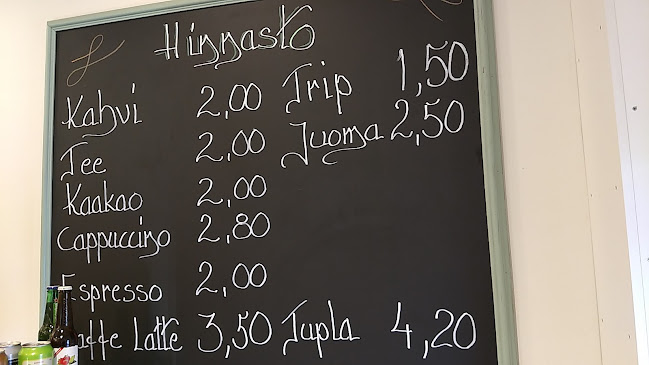 Hinnasto
Kahvi 2,00 Trip 1,50
Tee 2,00 Juoma 2,50
Kaakao 2,00
Cappuccino 2,80
Espresso 2,00
Caffe Latte 3,50 Tupla 4,20